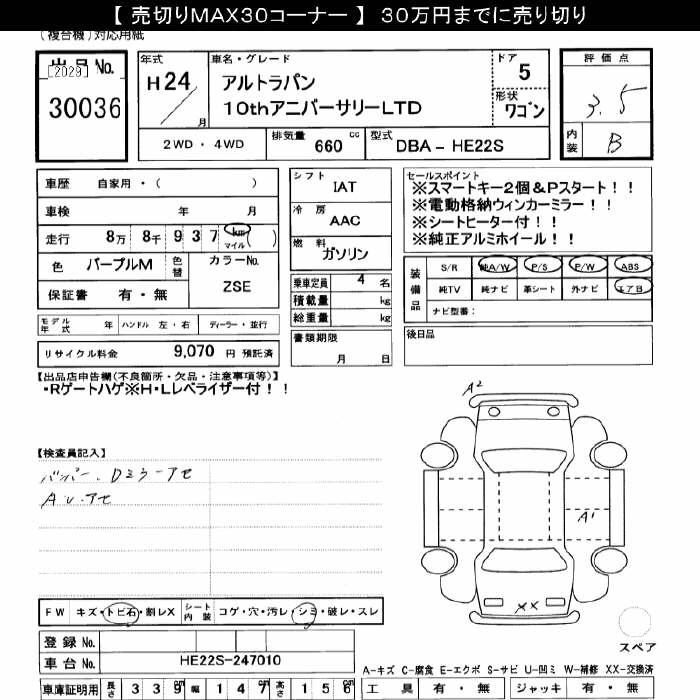 【 売切りMAX30コーナー 】 30万円までに売り切り
(複合機)対応用紙
出品No.
[2029]
30036
年式
H24
月
車名・グレード
アルトラパン
10thアニバーサリーLTD
ドア
5
形状
ワゴン
評価点
3.5
内装
B
2WD ・ 4WD
排気量
660 cc
型式
DBA - HE22S
車歴 自家用・( )
車検 年 月
走行 8万 8千 9 3 7 km マイル ( )
色 パープルM 色替
カラーNo.
ZSE
保証書 有・無
シフト
IAT
冷房
AAC
燃料
ガソリン
乗車定員 4 名
積載量 kg
総重量 kg
書類期限
月 日
セールスポイント
※スマートキー2個&Pスタート!!
※電動格納ウィンカーミラー!!
※シートヒーター付!!
※純正アルミホイール!!
装備品
S/R 純A/W P/S P/W ABS
純TV 純ナビ 革シート 外ナビ エアB
ナビ型番:
後日品
モデル年式 年 ハンドル 左・右 ディーラー・並行
リサイクル料金 9,070 円 預託済
【出品店申告欄(不良箇所・欠品・注意事項等)】
・Rゲートハゲ※H・Lレベライザー付!!
【検査員記入】
バンパー・Dミラーアセ
A.U.アセ
A2
A1
XX
スペア
FW キズ・トビ石・割レX シート内装 コゲ・穴・汚レ・シミ・破レ・スレ
登録No.
車台No. HE22S-247010
車庫証明用 長さ 3 3 9 cm 幅 1 4 7 cm 高さ 1 5 6 cm
A-キズ C-腐食 E-エクボ S-サビ U-凹ミ W-補修 XX-交換済
工具 有・無 ジャッキ 有・無